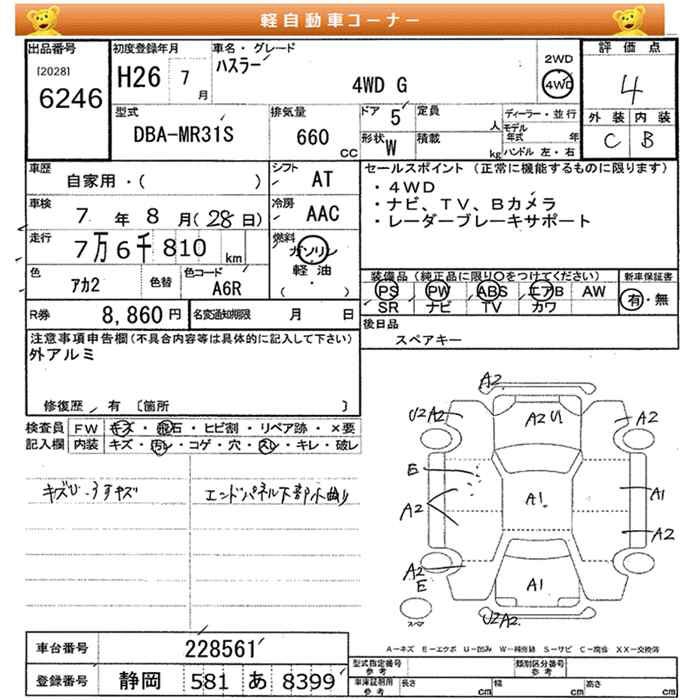 軽自動車コーナー
出品番号
[2028]
6246
初度登録年月
H26 7 月
車名・グレード
ハスラー
4WD G
2WD
4WD
評価点
4
外装 内装
C B
型式
DBA-MR31S
排気量
660 CC
ドア 5
定員 人
形状 W
積載 kg
ディーラー・並行
モデル年式 年
ハンドル 左・右
車歴
自家用・( )
シフト AT
車検
7 年 8 月 (28 日)
冷房 AAC
走行
7万6千810 km
燃料
ガソリン
軽油
( ・ )
色 アカ2
色替
色コード A6R
R券 8,860 円
名変通知期限 月 日
セールスポイント (正常に機能するものに限ります)
・4WD
・ナビ、TV、Bカメラ
・レーダーブレーキサポート
装備品 (純正品に限り○をつけてください)
PS PW ABS エアB AW
SR ナビ TV カワ
新車保証書
有・無
後日品
スペアキー
注意事項申告欄 (不具合内容等は具体的に記入して下さい)
外アルミ
修復歴 有 〔箇所 〕
検査員記入欄
FW キズ・飛石・ヒビ割・リペア跡・×要
内装 キズ・汚レ・コゲ・穴・スレ・キレ・破レ
キズU・うすキズ
エンドパネル下部小曲り
A2
U2 A2
A2 U1
A2
E
A2
A1
A1
A2
A2
E
A1
U2 A2
スペア
A-キズ E-エクボ U-凹み W-補修跡 S-サビ C-腐食 XX-交換済
車台番号 228561
登録番号 静岡 581 あ 8399
型式指定番号 参考
類別区分番号 参考
車庫証明用 参考
長さ cm
幅 cm
高さ cm